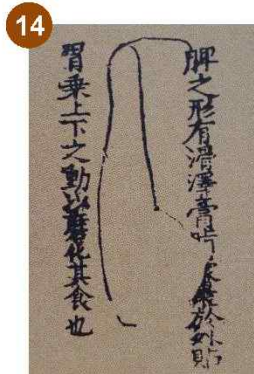 14
脾之形有滑澤膏於外貼
胃乘上下之動以磨化其食也